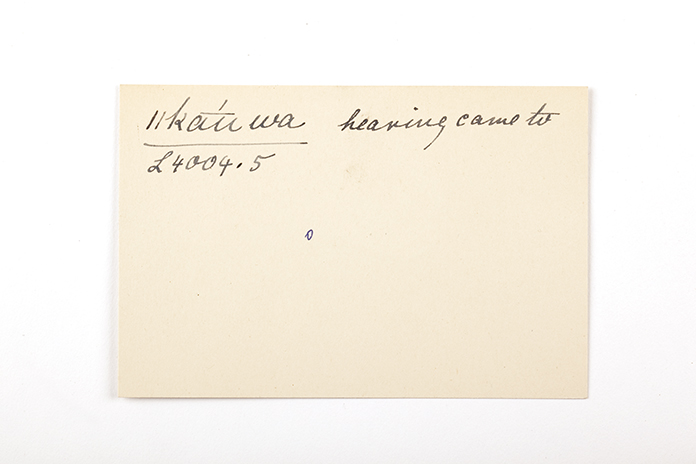 ǁkátī wa hearing came to
L4004.5
o